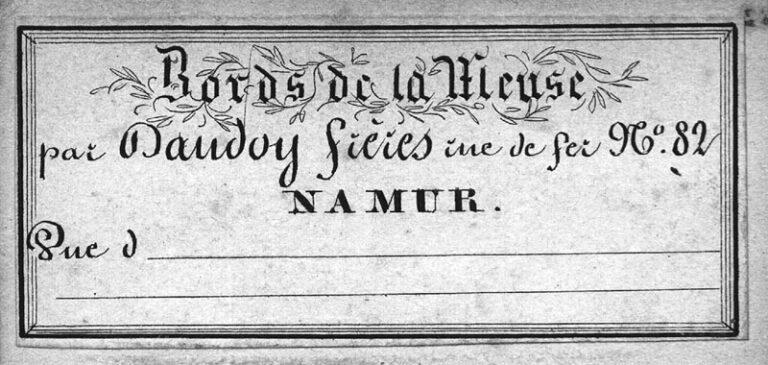 Bords de la Meuse
par Dandoy frères rue de fer No. 82
NAMUR.
Vue d